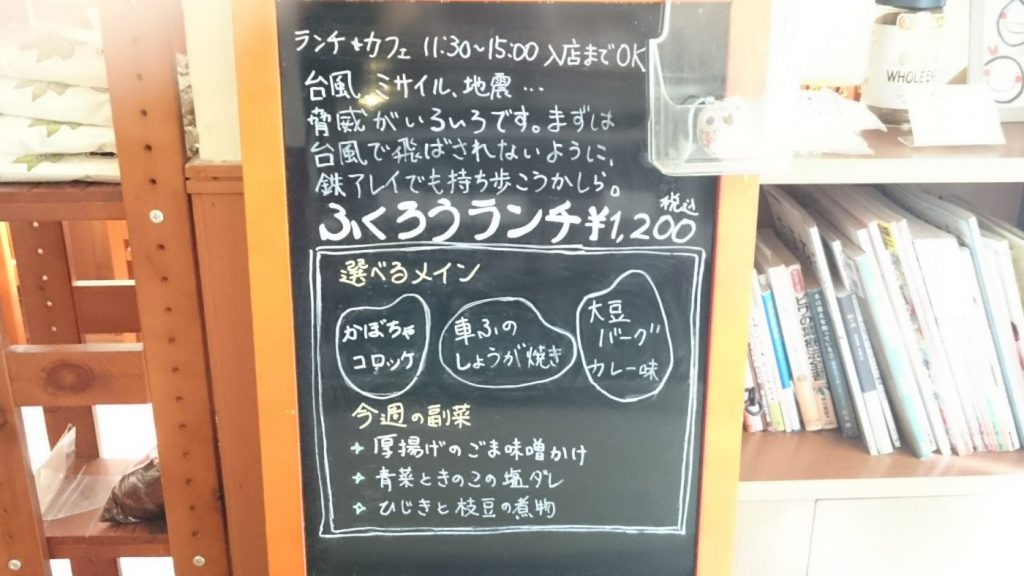 ランチ+カフェ 11:30~15:00 入店までOK
台風、ミサイル、地震…
脅威がいろいろです。まずは
台風で飛ばされないように、
鉄アレイでも持ち歩こうかしら。
ふくろうランチ¥1,200 税込
選べるメイン
かぼちゃ
コロッケ
車ふの
しょうが焼き
大豆
バーグ
カレー味
今週の副菜
厚揚げのごま味噌かけ
青菜ときのこの塩ダレ
ひじきと枝豆の煮物